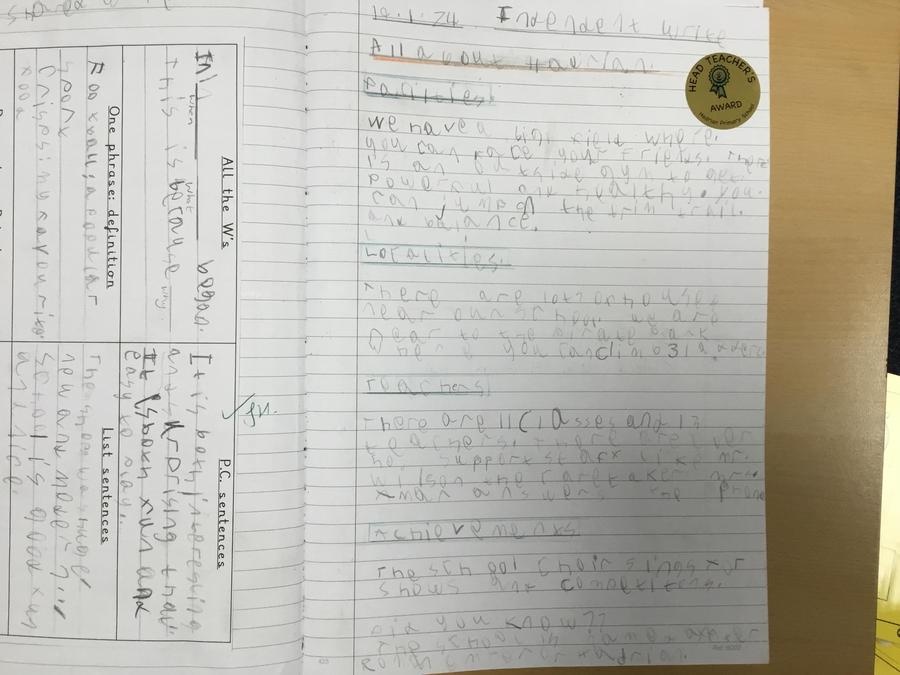 19.1.24 Independent write
All about Hadrian
Facilities!
HEAD TEACHER'S
AWARD
Hadrian Primary School
we have a big field where
you can race your friends. There
is an outside gym to get
powerful and healthy. you
can jump on the trim trail
and balance.
Localities.
There are lots of houses
near our school. we are
near to the pirate park
where you can climb 31 ladders
Teachers!
There are 11 classes and 13
teachers. There are
support staff like mr.
wilson the caretaker mrs
answers the phone
Achievements
The school choir sings for
shows and competitions.
Did you know??
The school is named after
roman emperor hadrian.
All the W's
In began.
when what
This is because
why
P.C. sentences
It is both interesting
and surprising that
It is both fun and
easy to play.
One phrase: definition
Football, a popular
sport
Crisps: my favourite
food
List sentences
The shoe was huge,
new and made in...
School is good fun
and life.